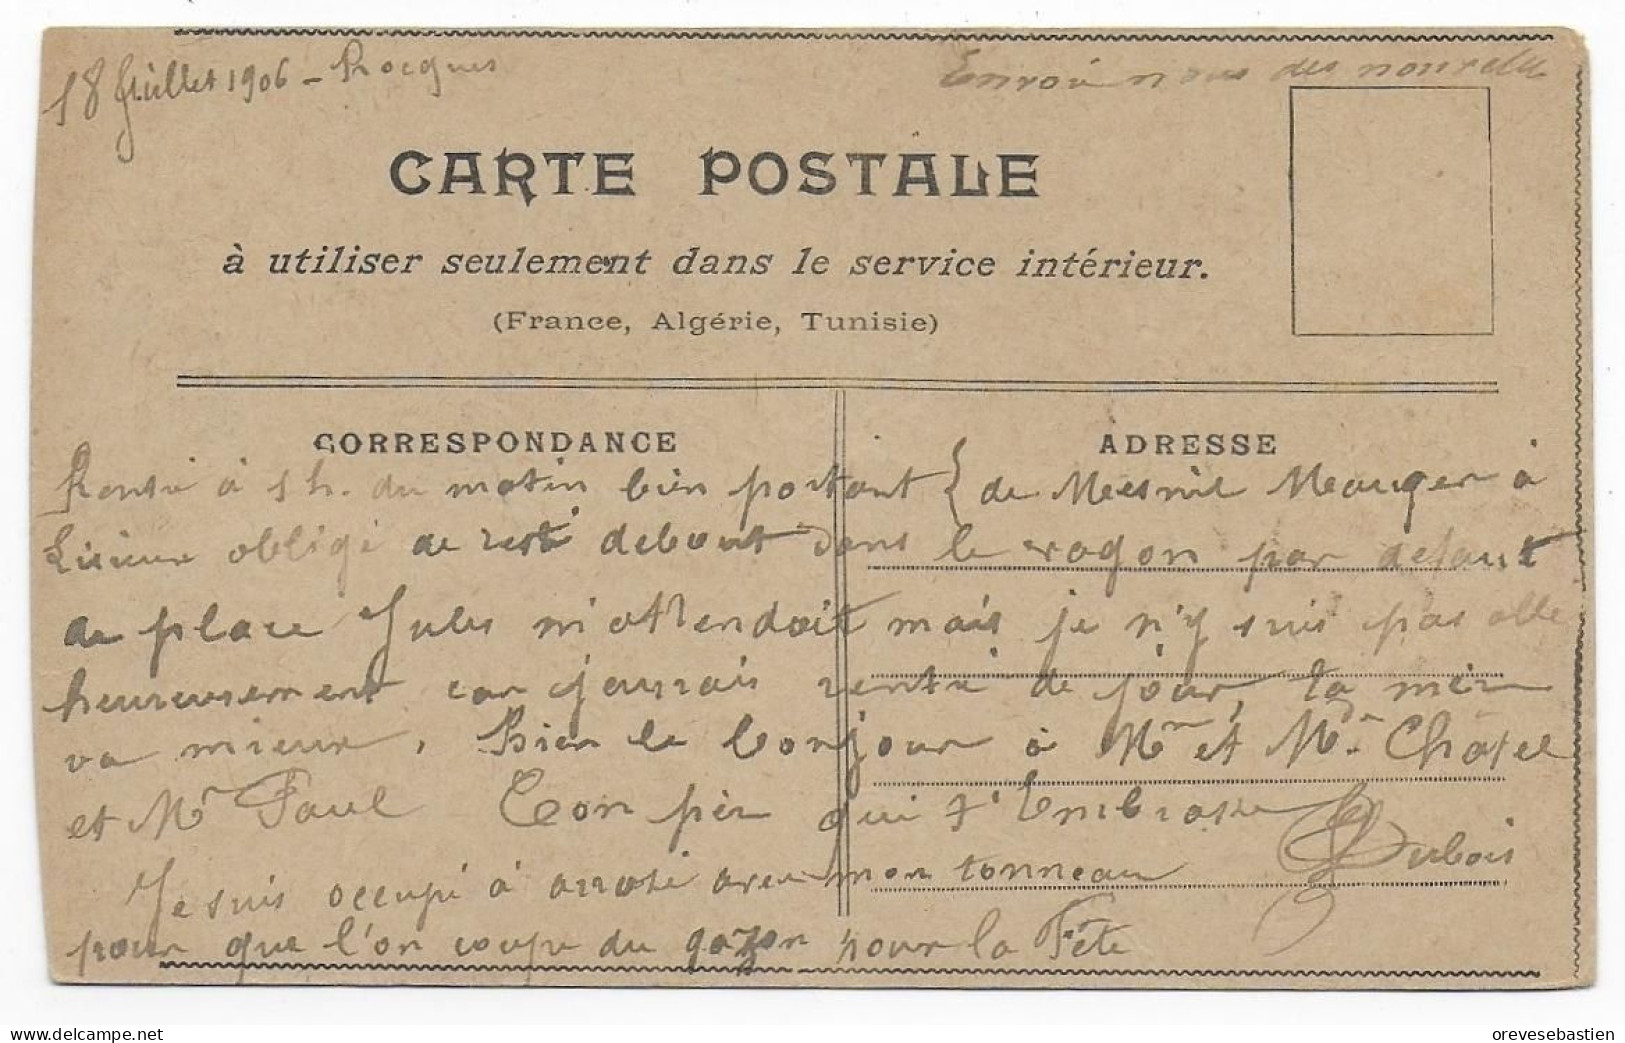 18 Juillet 1906 - Rocques
Envoie nous des nouvelle
CARTE POSTALE
à utiliser seulement dans le service intérieur.
(France, Algérie, Tunisie)
CORRESPONDANCE
ADRESSE
Rentré à 1 h. du matin bien portant } de Mesnil Mauger à
Lisieux obligé de resté debout dans le vagon par défaut
de place Jules m'attendait mais je n'y suis pas allé
heureusement car j'aurais rentré de jour, ta mèr
va mieux, Bien le bonjour à Mr et Me Châtel
et Mr Paul Ton pèr qui t'embrasse Dubois
Je suis occupé à arrosé avec mon tonneau
pour que l'on coupe du gazon pour la Fête
www.delcampe.net
orevesebastien